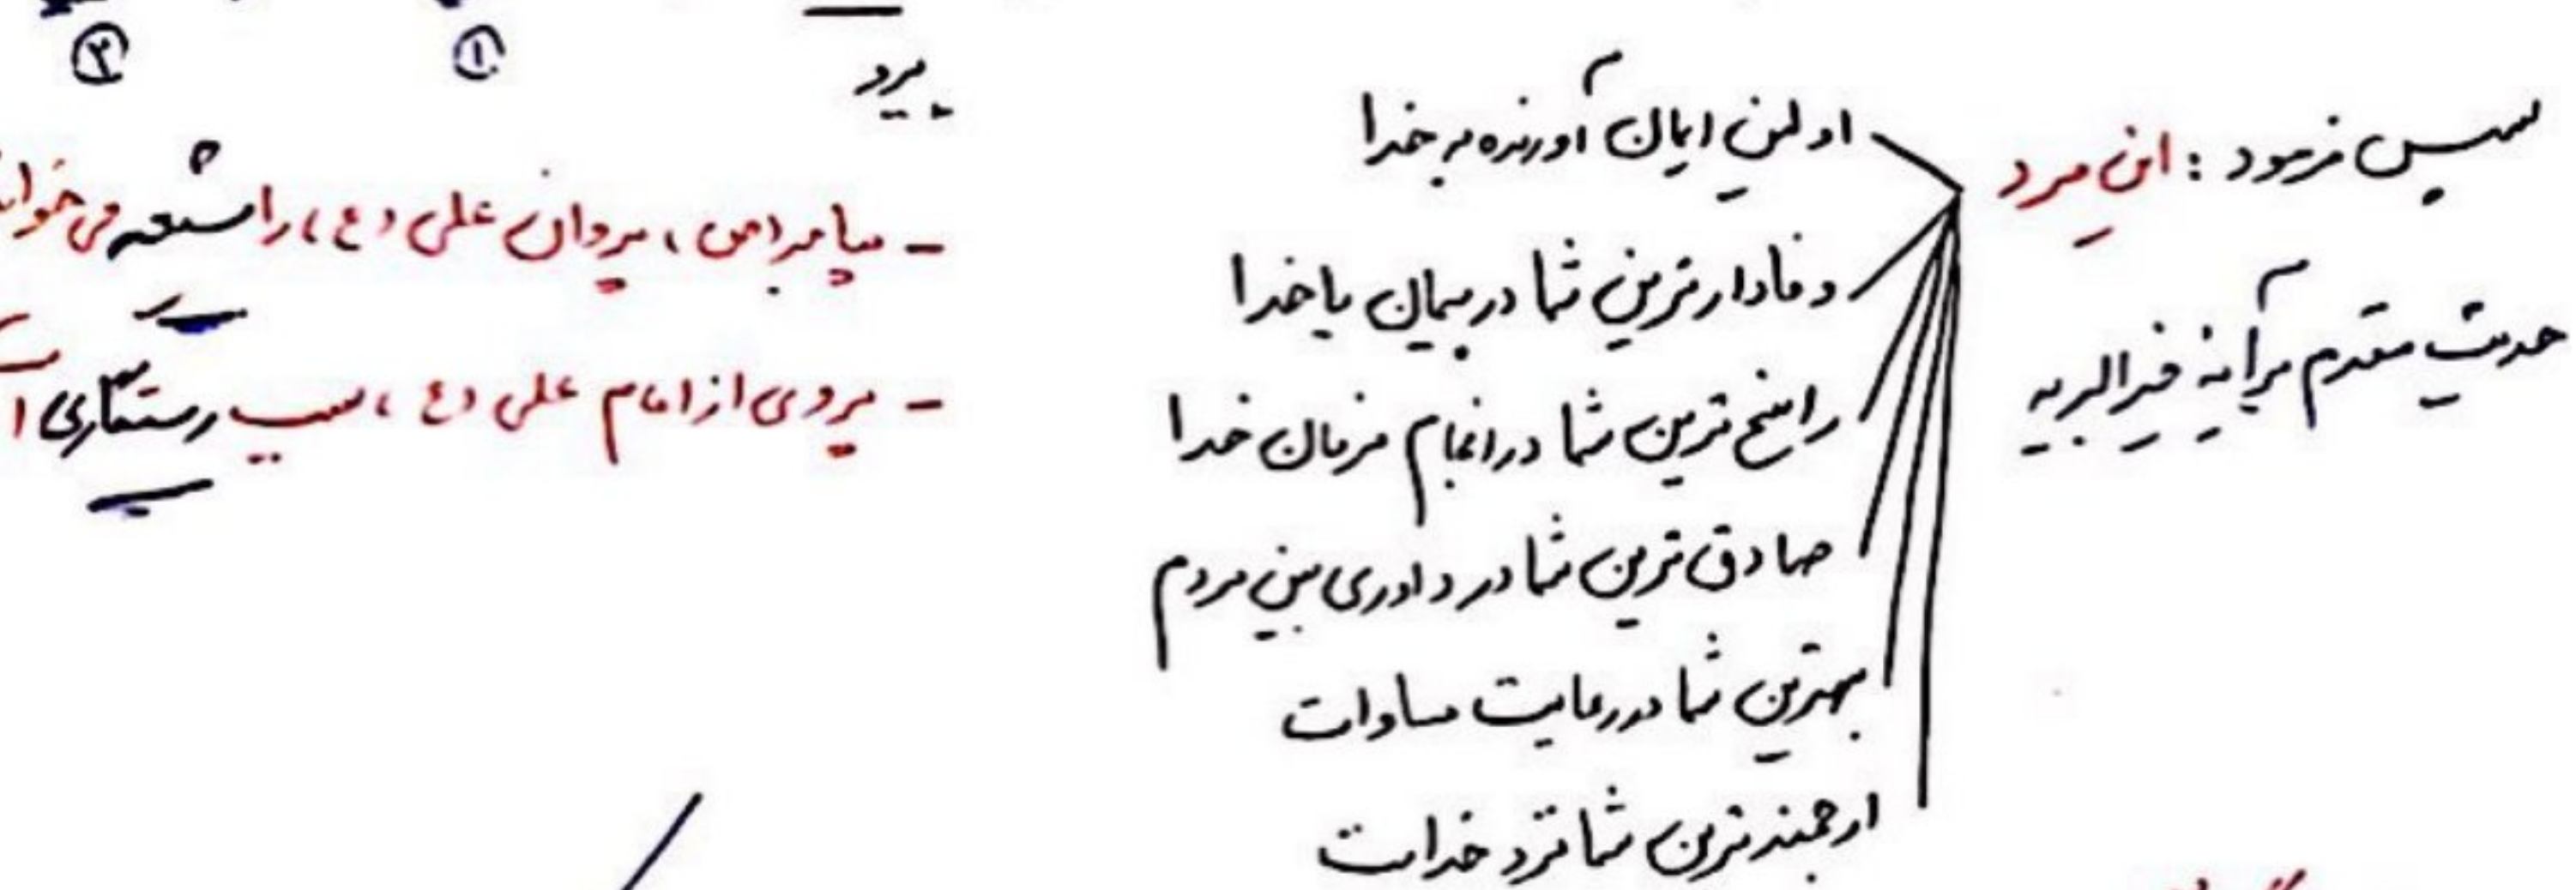 سپس فرمود : این مرد
حدیث مقدم بر آیه خیرالبریه
اولین ایمان آورنده به خدا
وفادارترین شما در پیمان با خدا
راسخ ترین شما در انجام فرمان خدا
صادق ترین شما در داوری بین مردم
بهترین شما در رعایت مساوات
ارجمندترین شما نزد خداست
① ②
پیرو
- پیامبر (ص) ، پیروان علی (ع) را شیعه می خواند
- پیروی از امام علی (ع) ، سبب رستگاری